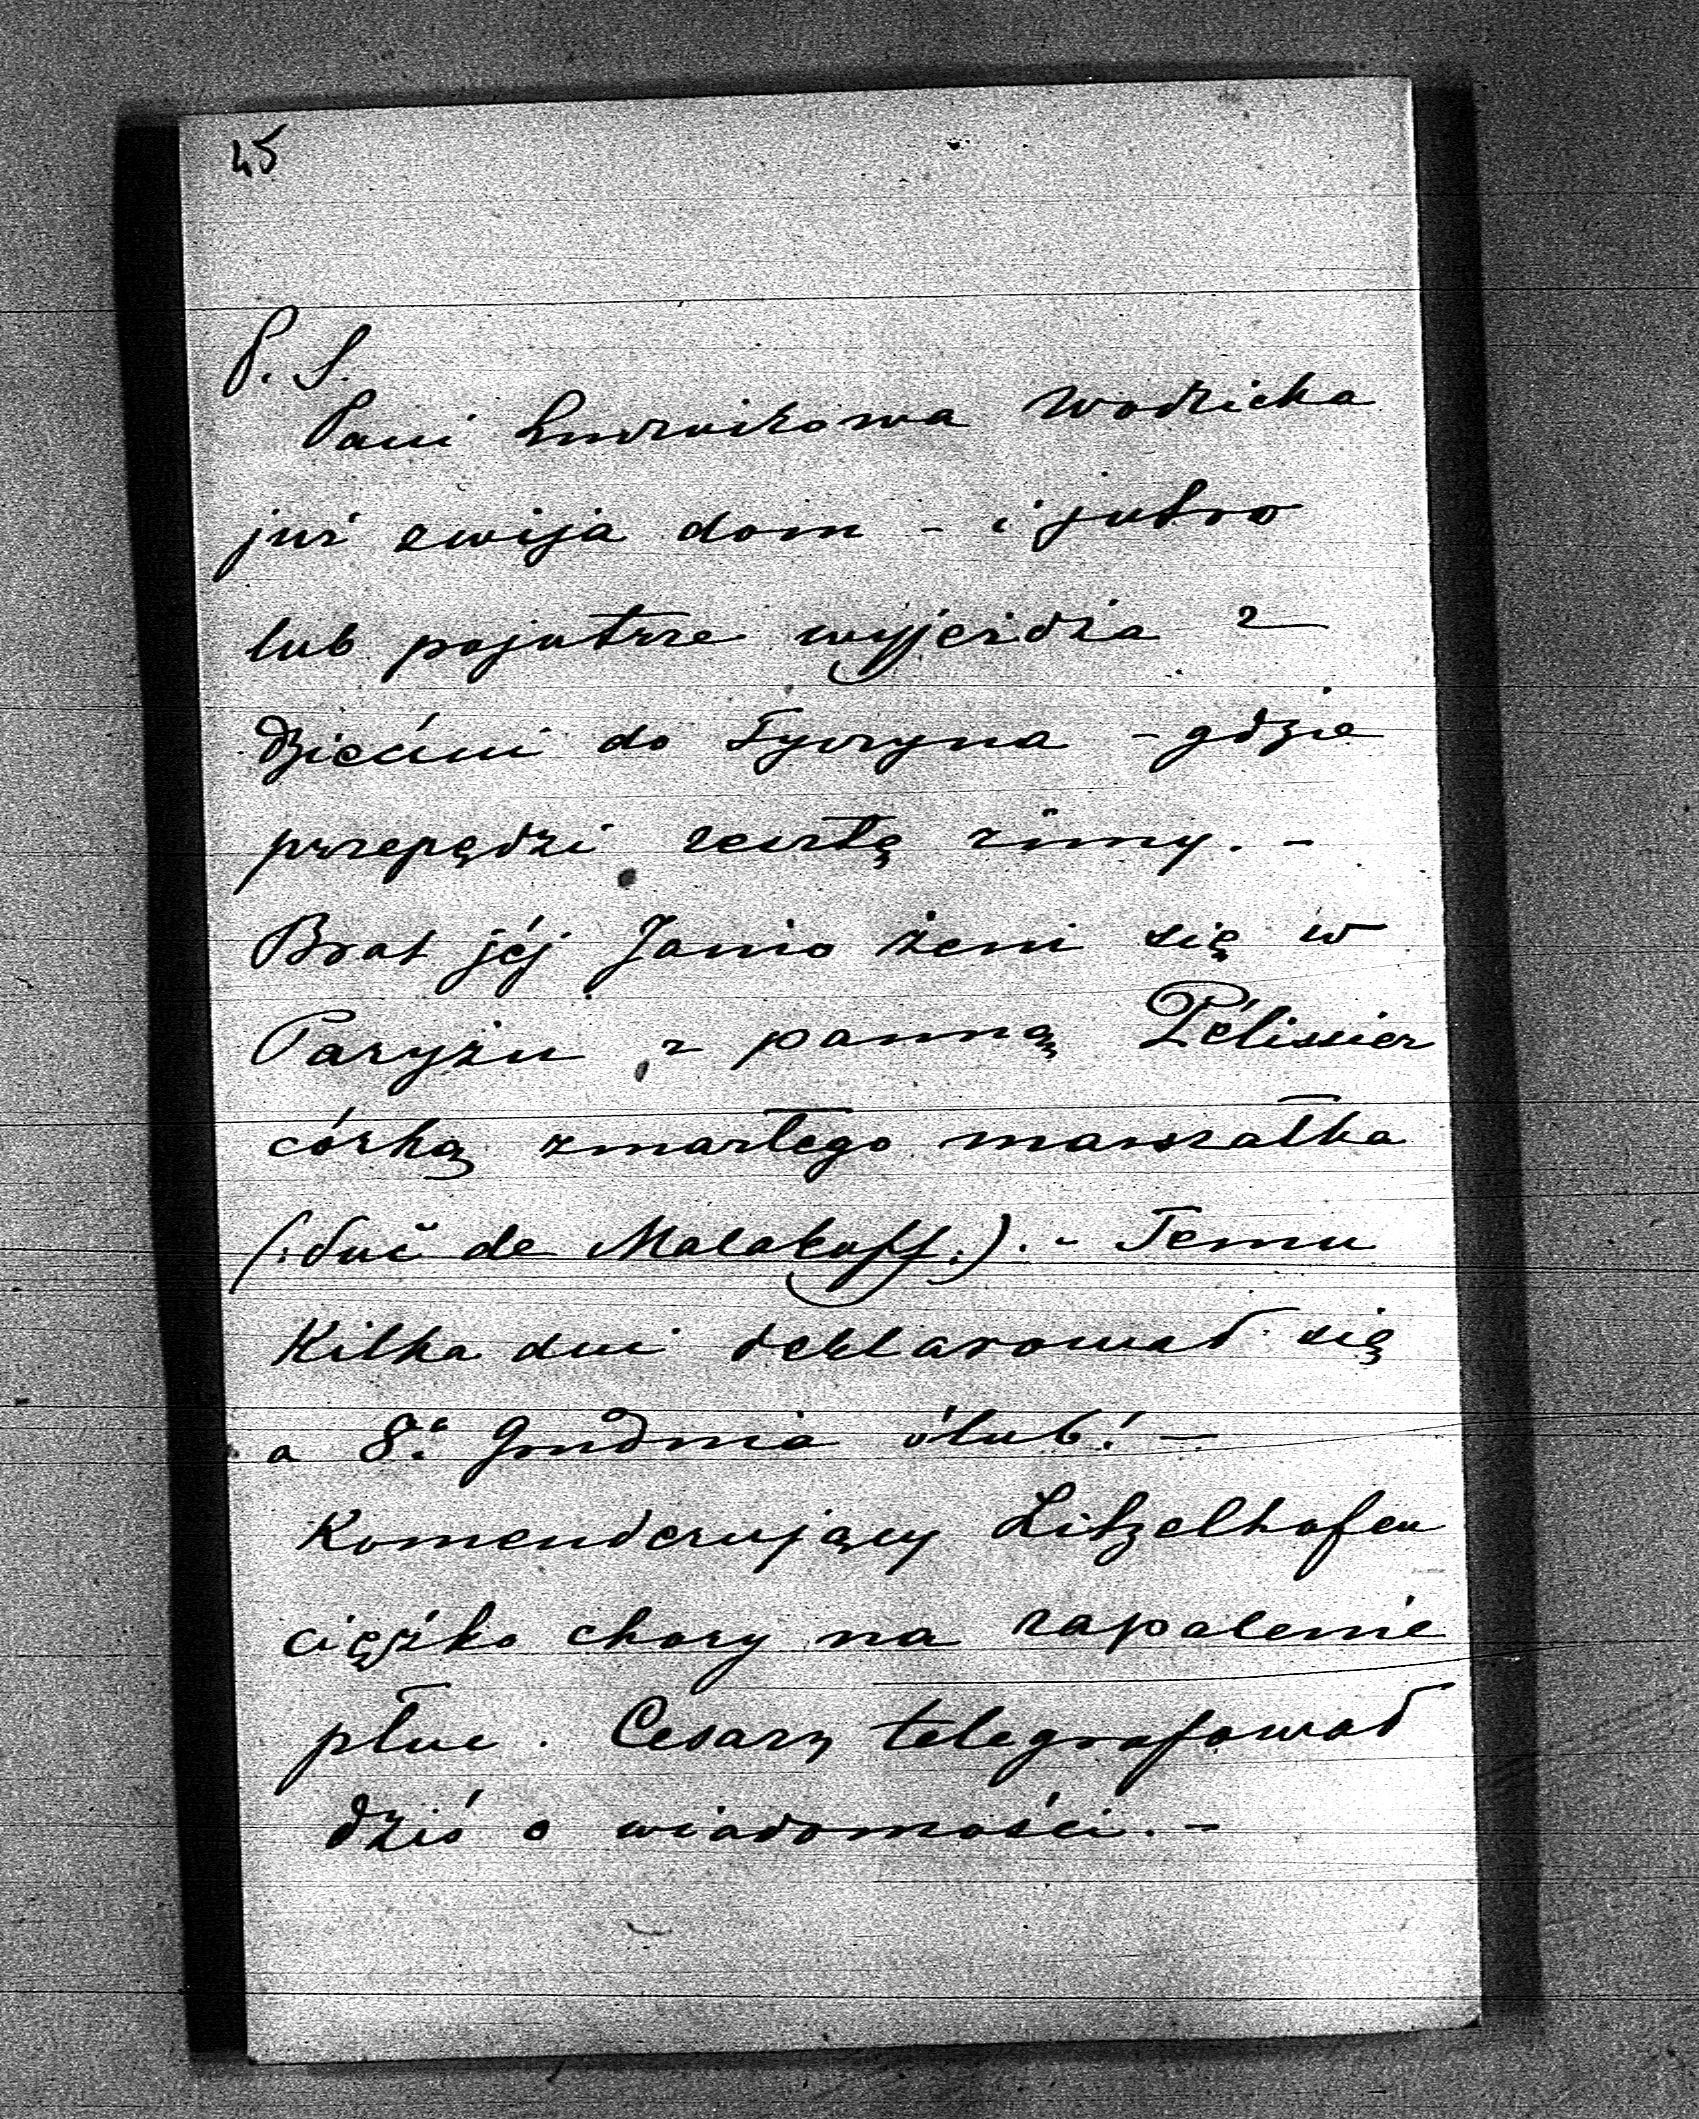 45
P. S.
Pani Ludwikowa Wodzicka
już zwija dom - i jutro
lub pojutrze wyjeżdża z
dziećmi do Tyczyna - gdzie
przepędzi resztę zimy. -
Brat jéj Janio żeni się w
Paryżu z panną Pélissier
córką zmarłego marszałka
(: duc de Malakoff :). - Temu
Kilka dni deklarował się
a 8.° Grudnia ślub! -
Komenderujący Litzelhofen
ciężko chory na zapalenie
płuc. Cesarz telegrafował
dziś o wiadomości. -